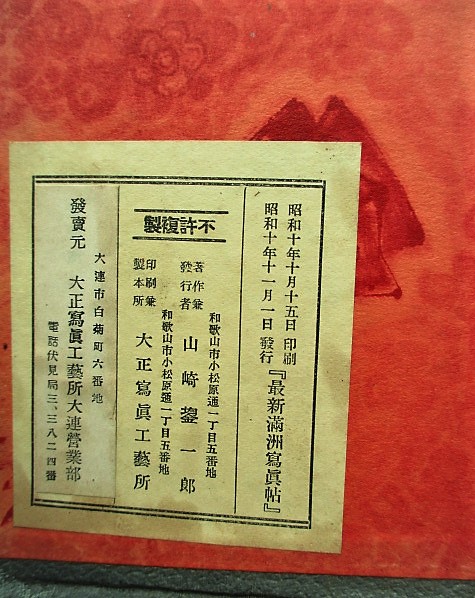 昭和十年十月十五日 印刷
昭和十年十一月一日 發行 『最新滿洲寫眞帖』
不許複製
和歌山市小松原通一丁目五番地
著作兼發行者 山崎鋆一郎
和歌山市小松原通一丁目五番地
印刷兼製本所 大正寫眞工藝所
大連市白菊町六番地
發賣元 大正寫眞工藝所大連營業部
電話伏見局三、三八二四番